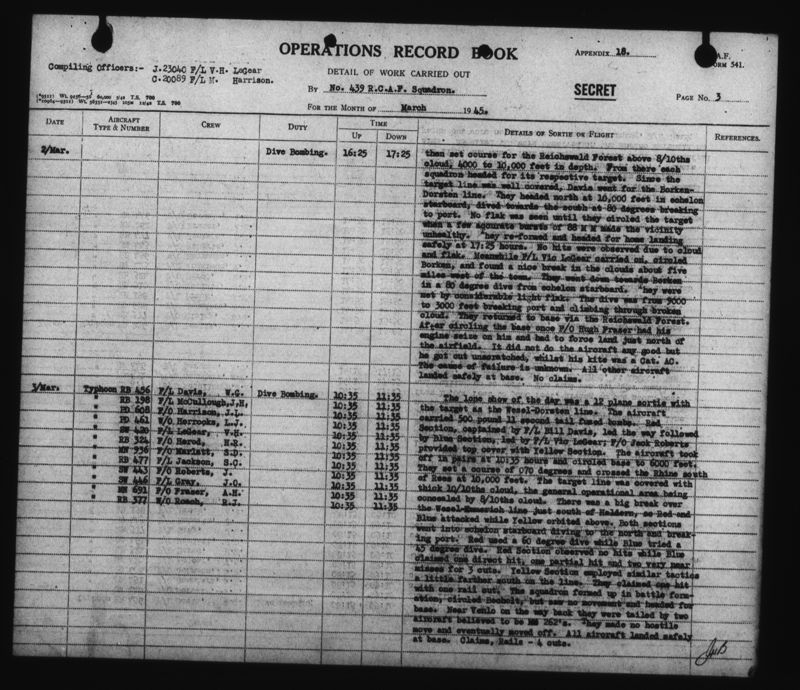 OPERATIONS RECORD BOOK
APPENDIX 18.
A.F.
ORM 541.
Compiling Officers:- J.23040 F/L V.H. LeGear
C.20089 F/L M. Harrison.
DETAIL OF WORK CARRIED OUT
BY No. 439 R.C.A.F. Squadron.
SECRET
PAGE No. 3
FOR THE MONTH OF March 1945.
DATE
AIRCRAFT TYPE & NUMBER
CREW
DUTY
TIME
UP
DOWN
DETAILS OF SORTIE OR FLIGHT
REFERENCES.
2/Mar. Dive Bombing. 16:25 17:25
then set course for the Reichswald Forest above 8/10ths
cloud, 4000 to 10,000 feet in depth. From there each
squadron headed for its respective target. Since the
target line was well covered, Davis went for the Borken-
Dorsten line. They headed north at 10,000 feet in echelon
starboard, dived towards the south at 80 degrees breaking
to port. No flak was seen until they circled the target
when a few accurate bursts of 88 M M made the vicinity
unhealthy. They re-formed and headed for home landing
safely at 17:25 hours. No hits were observed due to cloud
and flak. Meanwhile F/L Vic LeGear carried on, circled
Borken, and found a nice break in the clouds about five
miles west of the town. They went down towards Borken
in a 80 degree dive from echelon starboard. They were
met by considerable light flak. The dive was from 9000
to 3000 feet breaking port and climbing through broken
cloud. They returned to base via the Reichswald Forest.
After circling the base once F/O Hugh Fraser had his
engine seize on him and had to force land just north of
the airfield. It did not do the aircraft any good but
he got out unscratched, whilst his kite was a Cat. AC.
The cause of failure is unknown. All other aircraft
landed safely at base. No claims.
3/Mar. Typhoon RB 456 F/L Davis, W.G. Dive Bombing. 10:35 11:35
" RB 198 F/L McCullough,J.H. 10:35 11:35
" PD 608 F/O Harrison, J.L. 10:35 11:35
" PD 461 W/O Horrocks, L.J. 10:35 11:35
" SW 420 F/L LeGear, V.H. 10:35 11:35
" RB 324 F/O Herod, H.R. 10:35 11:35
" MN 936 F/O Marlatt, S.D. 10:35 11:35
" RB 477 F/L Jackson, S.C. 10:35 11:35
" SW 443 F/O Roberts, J. 10:35 11:35
" SW 446 F/L Gray, J.O. 10:35 11:35
" MN 691 F/O Fraser, A.H. 10:35 11:35
" RB 377 W/O Roach, R.J. 10:35 11:35
The lone show of the day was a 12 plane sortie with
the target as the Wesel-Dorsten line. The aircraft
carried 500 pound 11 second tail fused bombs. Red
Section, captained by F/L Bill Davis, led the way followed
by Blue Section, led by F/L Vic LeGear; F/O Jack Roberts
provided top cover with Yellow Section. The aircraft took
off in pairs at 10:35 hours and circled base to 6000 feet.
They set a course of 070 degrees and crossed the Rhine south
of Rees at 10,000 feet. The target line was covered with
thick 10/10ths cloud, the general operational area being
concealed by 8/10ths cloud. There was a big break over
the Wesel-Emmerich line just south of Haldern, so Red and
Blue attacked while Yellow orbited above. Both sections
went into echelon starboard diving to the north and break-
ing port. Red used a 60 degree dive while Blue tried a
45 degree dive. Red Section observed no hits while Blue
claimed one direct hit, one partial hit and two very near
misses for 3 cuts. Yellow Section employed similar tactics
a little farther south on the line. They claimed one hit
with one rail cut. The squadron formed up in battle form-
ation, circled Bocholt, but saw no movement and headed for
base. Near Venlo on the way back they were tailed by two
aircraft believed to be ME 262's. They made no hostile
move and eventually moved off. All aircraft landed safely
at base. Claims, Rails - 4 cuts.